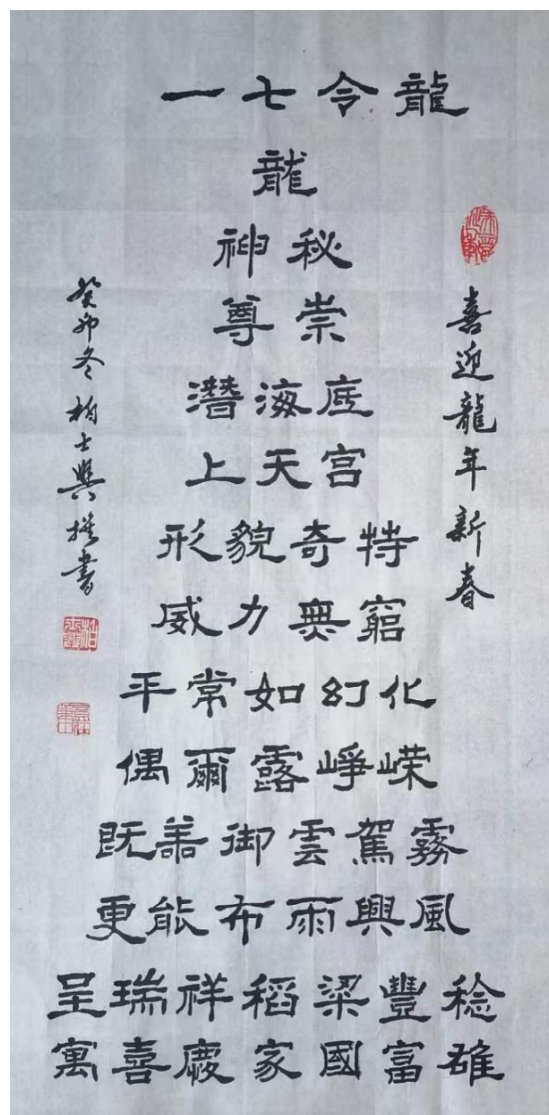 一七令龍
龍
神秘
尊崇
潛海底
上天宫
形貌奇特
威力無窮
平常如幻化
偶爾露崢嵘
既善御雲駕霧
更能布雨興風
呈瑞祥稻粱豐稔
寓喜慶家國富雄
喜迎龍年新春
癸卯冬柏士興撰書